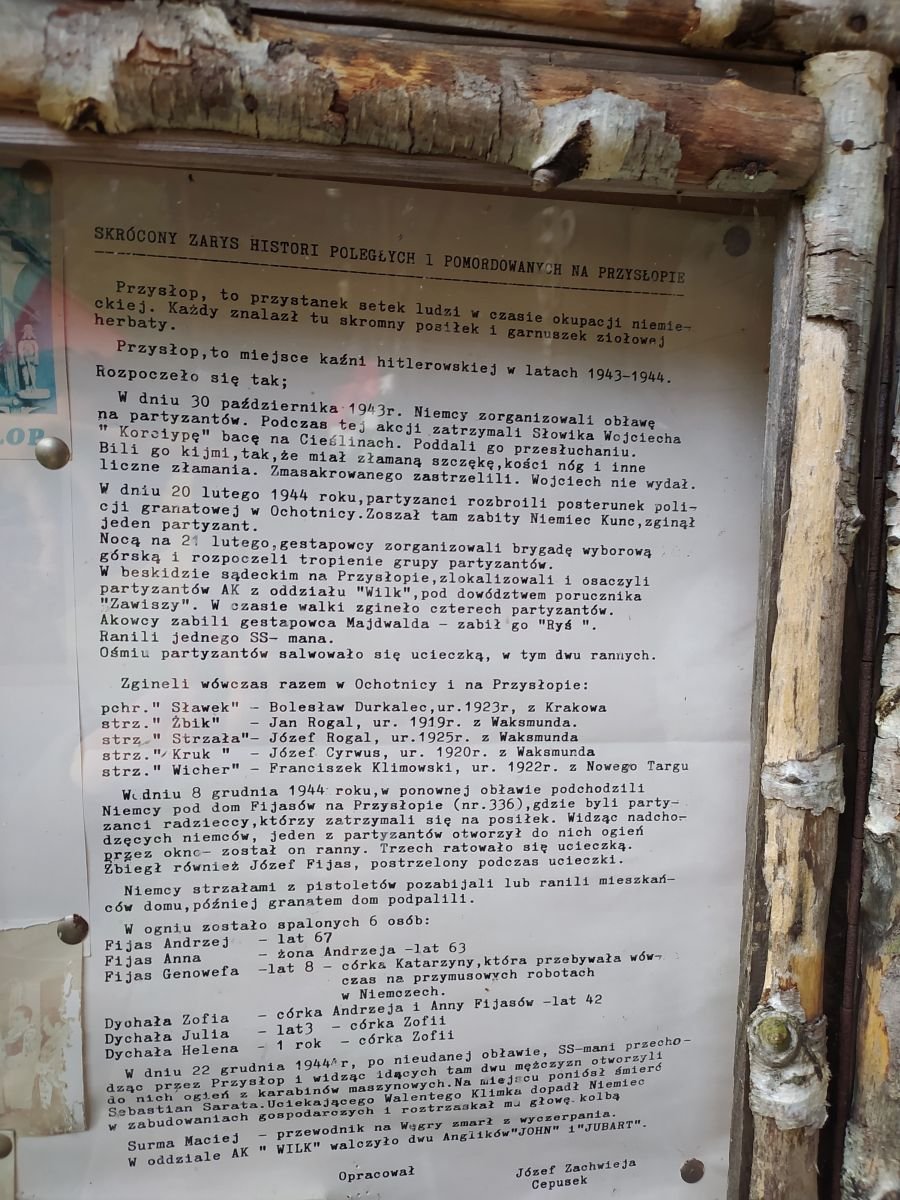 SKRÓCONY ZARYS HISTORI POLEGŁYCH 1 POMORDOWANYCH NA PRZYSŁOPIE
Przysłop, to przystanek setek ludzi w czasie okupacji niemie-
ckiej. Każdy znalazł tu skromny posiłek i garnuszek ziołowej
herbaty.
Przysłop,to miejsce kaźni hitlerowskiej w latach 1943-1944.
Rozpoczeło się tak;
W dniu 30 października 1943r. Niemcy zorganizowali obławę
na partyzantów. Podczas tej akcji zatrzymali Słowika Wojciecha
" Korciypę" bacę na Cieślinach. Poddali go przesłuchaniu.
Bili go kijmi,tak,że miał złamaną szczękę,kości nóg i inne
liczne złamania. Zmasakrowanego zastrzelili. Wojciech nie wydał.
W dniu 20 lutego 1944 roku,partyzanci rozbroili posterunek poli-
cji granatowej w Ochotnicy.Zoszał tam zabity Niemiec Kunc,zginął
jeden partyzant.
Nocą na 21 lutego,gestapowcy zorganizowali brygadę wyborową
górską i rozpoczeli tropienie grupy partyzantów.
W beskidzie sądeckim na Przysłopie,zlokalizowali i osaczyli
partyzantów AK z oddziału "Wilk",pod dowództwem porucznika
"Zawiszy". W czasie walki zgineło czterech partyzantów.
Akowcy zabili gestapowca Majdwalda - zabił go "Ryś ".
Ranili jednego SS- mana.
Ośmiu partyzantów salwowało się ucieczką, w tym dwu rannych.
Zgineli wówczas razem w Ochotnicy i na Przysłopie:
pchr." Sławek" - Bolesław Durkalec,ur.1923r, z Krakowa
strz." Żbik" - Jan Rogal, ur. 1919r. z Waksmunda.
strz." Strzała"- Józef Rogal, ur.1925r. z Waksmunda
strz." Kruk " - Józef Cyrwus, ur. 1920r. z Waksmunda
strz." Wicher" - Franciszek Klimowski, ur. 1922r. z Nowego Targu
W dniu 8 grudnia 1944 roku,w ponownej obławie podchodzili
Niemcy pod dom Fijasów na Przysłopie (nr.336),gdzie byli party-
zanci radzieccy,którzy zatrzymali się na posiłek. Widząc nadcho-
dzęcych niemców, jeden z partyzantów otworzył do nich ogień
przez okno- został on ranny. Trzech ratowało się ucieczką.
Zbiegł również Józef Fijas, postrzelony podczas ucieczki.
Niemcy strzałami z pistoletów pozabijali lub ranili mieszkań-
ców domu,później granatem dom podpalili.
W ogniu zostało spalonych 6 osób:
Fijas Andrzej - lat 67
Fijas Anna - żona Andrzeja -lat 63
Fijas Genowefa -lat 8 - córka Katarzyny,która przebywała wów-
czas na przymusowych robotach
w Niemczech.
Dychała Zofia - córka Andrzeja i Anny Fijasów -lat 42
Dychała Julia - lat3 - córka Zofii
Dychała Helena - 1 rok - córka Zofii
W dniu 22 grudnia 1944 r, po nieudanej obławie, SS-mani przecho-
dząc przez Przysłop i widząc idących tam dwu mężczyzn otworzyli
do nich ogień z karabinów maszynowych.Na miejscu poniósł śmierć
Sebastian Sarata.Uciekającego Walentego Klimka dopadł Niemiec
w zabudowaniach gospodarczych i roztrzaskał mu głowę kolbą
Surma Maciej - przewodnik na Węgry zmarł z wyczerpania.
W oddziale AK " WILK" walczyło dwu Anglików"JOHN" i"JUBART".
Opracował Józef Zachwieja
Cepusek